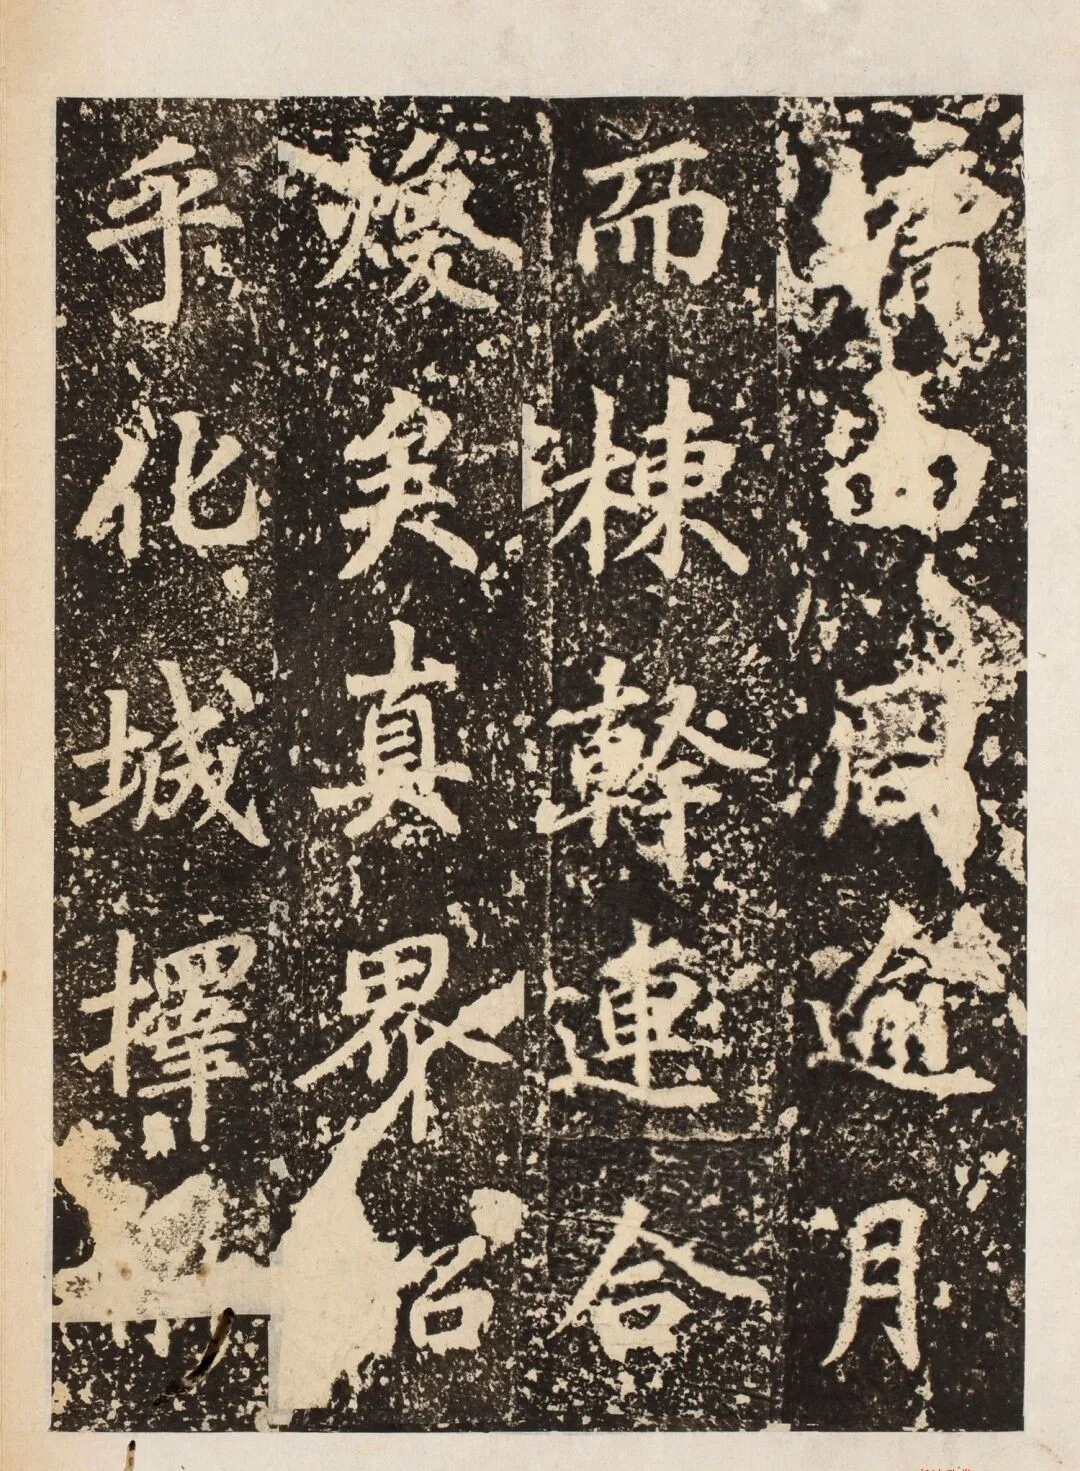 逾月
而棟幹連合
煥矣真界
乎化城擇